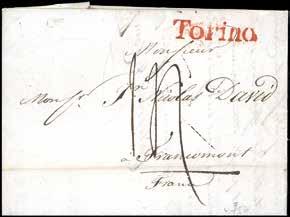 Torino
Monsieur
Monsr. Jn Nicolas David
à Francomont
France